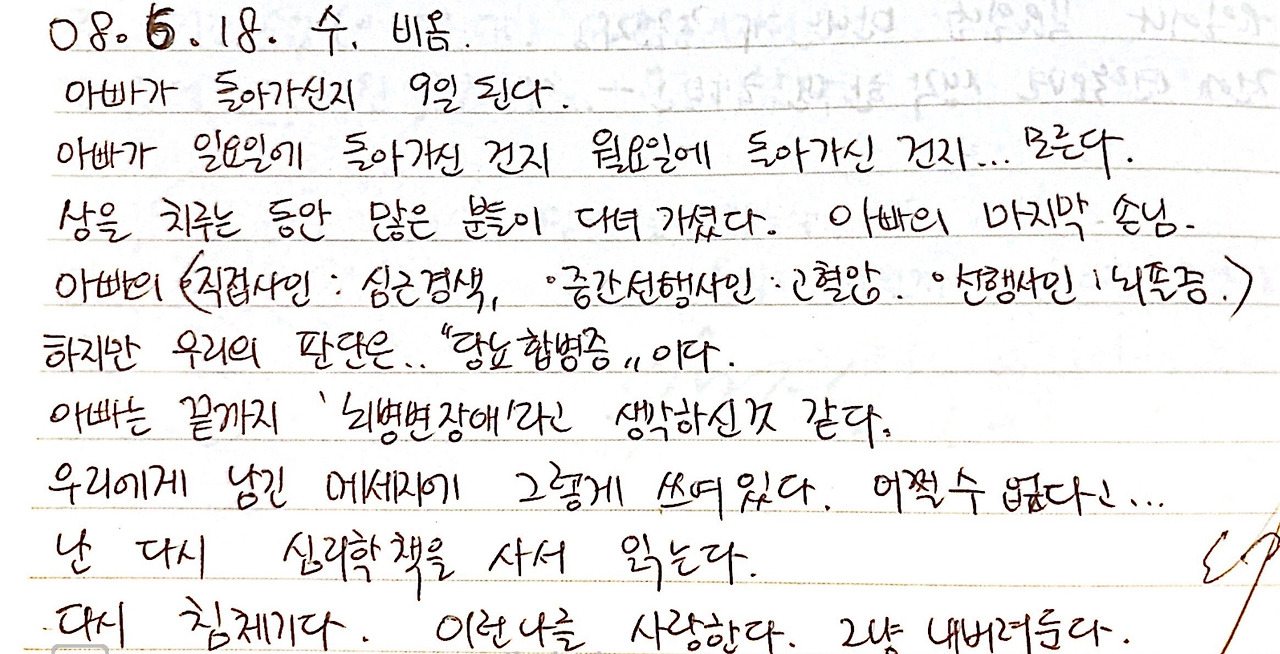 08. 6. 18. 수. 비옴.
아빠가 돌아가신지 9일 된다.
아빠가 일요일에 돌아가신 건지 월요일에 돌아가신 건지... 모른다.
상을 치루는 동안 많은 분들이 다녀 가셨다. 아빠의 마지막 손님.
아빠의 (직접사인 : 심근경색, ·중간선행사인 : 고혈압. ·선행사인 : 뇌졸증.)
하지만 우리의 판단은.. "당뇨합병증" 이다.
아빠는 끝까지 '뇌병변장애'라고 생각하신것 같다.
우리에게 남긴 메세지에 그렇게 쓰여있다. 어쩔수 없다고...
난 다시 심리학책을 사서 읽는다.
다시 침체기다. 이런나를 사랑한다. 그냥 내버려둔다.